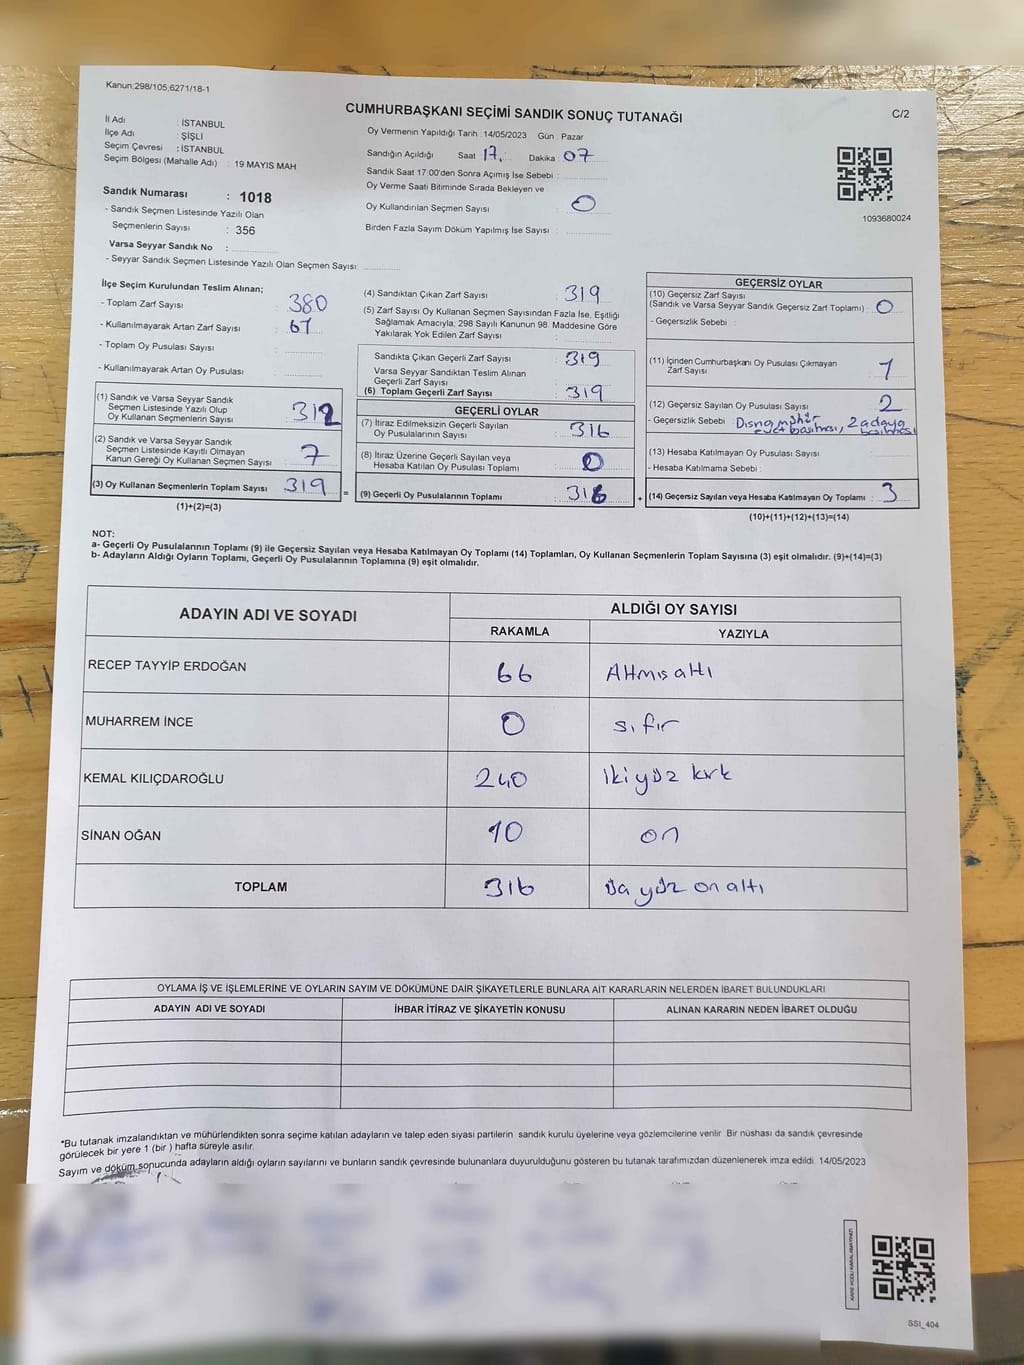 Kanun;298/105;6271/18-1
CUMHURBAŞKANI SEÇİMİ SANDIK SONUÇ TUTANAĞI
C/2
İl Adı : İSTANBUL
İlçe Adı : ŞİŞLİ
Seçim Çevresi : İSTANBUL
Seçim Bölgesi (Mahalle Adı) : 19 MAYIS MAH
Sandık Numarası : 1018
- Sandık Seçmen Listesinde Yazılı Olan
Seçmenlerin Sayısı : 356
Varsa Seyyar Sandık No :
- Seyyar Sandık Seçmen Listesinde Yazılı Olan Seçmen Sayısı:
Oy Vermenin Yapıldığı Tarih : 14/05/2023 Gün : Pazar
Sandığın Açıldığı Saat : 17 Dakika : 07
Sandık Saat 17.00'den Sonra Açımış İse Sebebi :
Oy Verme Saati Bitiminde Sırada Bekleyen ve
Oy Kullandırılan Seçmen Sayısı : 0
Birden Fazla Sayım Döküm Yapılmış İse Sayısı :
1093680024
İlçe Seçim Kurulundan Teslim Alınan;
- Toplam Zarf Sayısı : 380
- Kullanılmayarak Artan Zarf Sayısı : 61
- Toplam Oy Pusulası Sayısı :
- Kullanılmayarak Artan Oy Pusulası :
(1) Sandık ve Varsa Seyyar Sandık
Seçmen Listesinde Yazılı Olup
Oy Kullanan Seçmenlerin Sayısı : 312
(2) Sandık ve Varsa Seyyar Sandık
Seçmen Listesinde Kayıtlı Olmayan
Kanun Gereği Oy Kullanan Seçmen Sayısı : 7
(3) Oy Kullanan Seçmenlerin Toplam Sayısı : 319
(1)+(2)=(3)
(4) Sandıktan Çıkan Zarf Sayısı : 319
(5) Zarf Sayısı Oy Kullanan Seçmen Sayısından Fazla İse, Eşitliği
Sağlamak Amacıyla, 298 Sayılı Kanunun 98. Maddesine Göre
Yakılarak Yok Edilen Zarf Sayısı :
Sandıkta Çıkan Geçerli Zarf Sayısı : 319
Varsa Seyyar Sandıktan Teslim Alınan
Geçerli Zarf Sayısı :
(6) Toplam Geçerli Zarf Sayısı : 319
GEÇERLİ OYLAR
(7) İtiraz Edilmeksizin Geçerli Sayılan
Oy Pusulalarının Sayısı : 316
(8) İtiraz Üzerine Geçerli Sayılan veya
Hesaba Katılan Oy Pusulası Toplamı : 0
= (9) Geçerli Oy Pusulalarının Toplamı : 316 +
GEÇERSİZ OYLAR
(10) Geçersiz Zarf Sayısı
(Sandık ve Varsa Seyyar Sandık Geçersiz Zarf Toplamı) : 0
- Geçersizlik Sebebi :
(11) İçinden Cumhurbaşkanı Oy Pusulası Çıkmayan
Zarf Sayısı : 1
(12) Geçersiz Sayılan Oy Pusulası Sayısı : 2
- Geçersizlik Sebebi : mühür basılması, 2 adaya
basılması
(13) Hesaba Katılmayan Oy Pusulası Sayısı :
- Hesaba Katılmama Sebebi :
(14) Geçersiz Sayılan veya Hesaba Katılmayan Oy Toplamı : 3
(10)+(11)+(12)+(13)=(14)
NOT:
a- Geçerli Oy Pusulalarının Toplamı (9) ile Geçersiz Sayılan veya Hesaba Katılmayan Oy Toplamı (14) Toplamları, Oy Kullanan Seçmenlerin Toplam Sayısına (3) eşit olmalıdır. (9)+(14)=(3)
b- Adayların Aldığı Oyların Toplamı, Geçerli Oy Pusulalarının Toplamına (9) eşit olmalıdır.
ADAYIN ADI VE SOYADI
ALDIĞI OY SAYISI
RAKAMLA YAZIYLA
RECEP TAYYİP ERDOĞAN 66 Altmış altı
MUHARREM İNCE 0 sıfır
KEMAL KILIÇDAROĞLU 240 iki yüz kırk
SİNAN OĞAN 10 on
TOPLAM 316 Üç yüz on altı
OYLAMA İŞ VE İŞLEMLERİNE VE OYLARIN SAYIM VE DÖKÜMÜNE DAİR ŞİKAYETLERLE BUNLARA AİT KARARLARIN NELERDEN İBARET BULUNDUKLARI
ADAYIN ADI VE SOYADI İHBAR İTİRAZ VE ŞİKAYETİN KONUSU ALINAN KARARIN NEDEN İBARET OLDUĞU
*Bu tutanak imzalandıktan ve mühürlendikten sonra seçime katılan adayların ve talep eden siyasi partilerin sandık kurulu üyelerine veya gözlemcilerine verilir. Bir nüshası da sandık çevresinde
görülecek bir yere 1 (bir ) hafta süreyle asılır.
Sayım ve döküm sonucunda adayların aldığı oyların sayılarını ve bunların sandık çevresinde bulunanlara duyurulduğunu gösteren bu tutanak tarafımızdan düzenlenerek imza edildi. 14/05/2023
KARE KODU KARALAMAYINIZ!
SSI_404